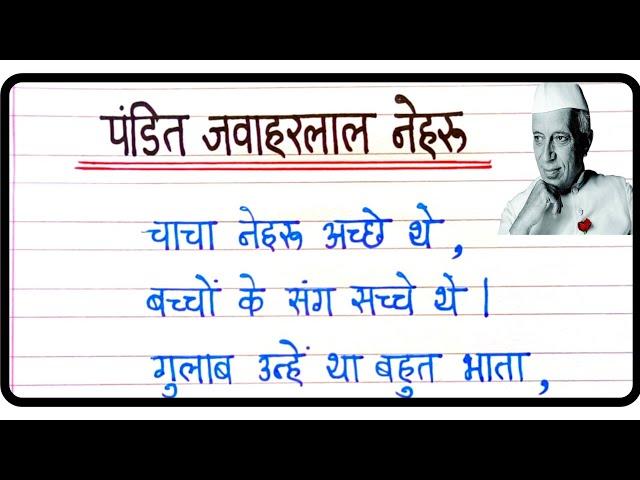 पंडित जवाहरलाल नेहरू
चाचा नेहरू अच्छे थे,
बच्चों के संग सच्चे थे।
गुलाब उन्हें था बहुत भाता,